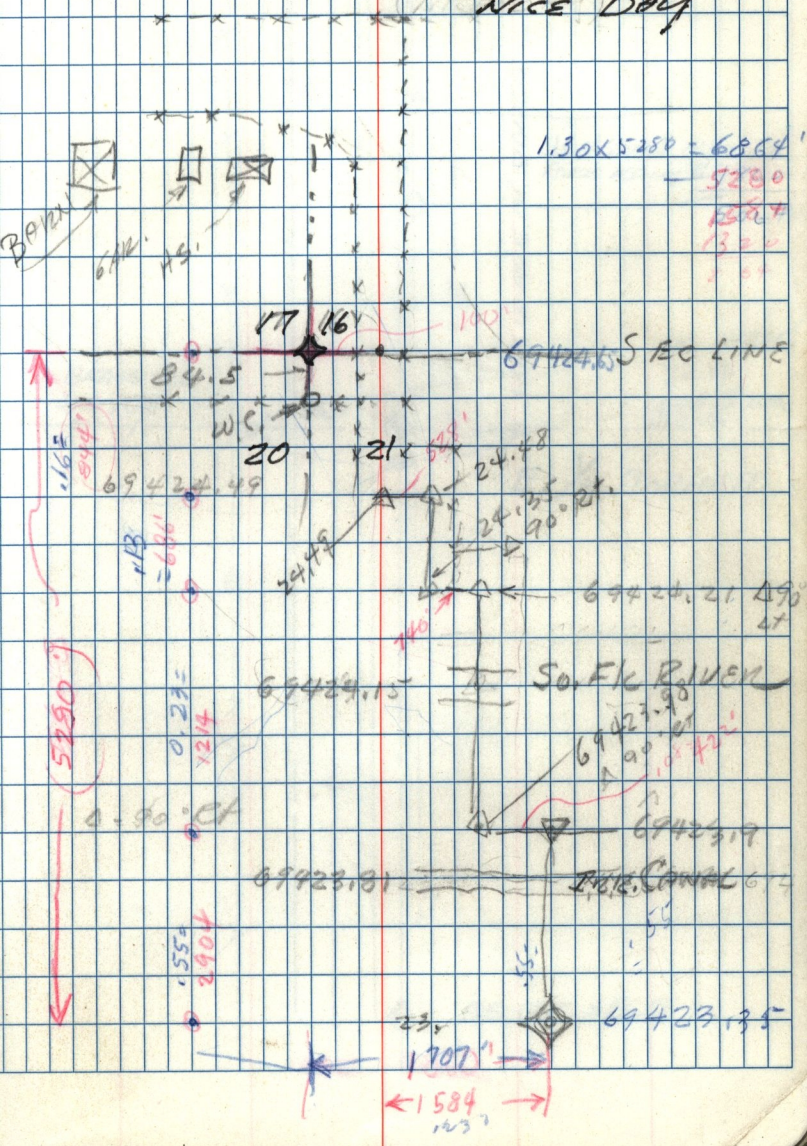 NICE DAY
1.30 x 5280 = 6864'
- 5280
BARN
GAR.
HS.
17 16
100'
69424.65 SEC LINE
84.5
W.C.
20 21
528'
24.48
.16=
844'
69424.49
24.49
24.35
90° Rt.
.13
=686'
69424.21 Δ90°
Lt
740'
69424.15
So. F/K RIVER
5280'
0.23=
1214
69423.90
90° Rt
.08 422'
Δ - 90° Rt
69423.9
69423.81
IRR. CANAL
.55
.55=
2904
.55=
23.
69423.35
1707'
1584
123'